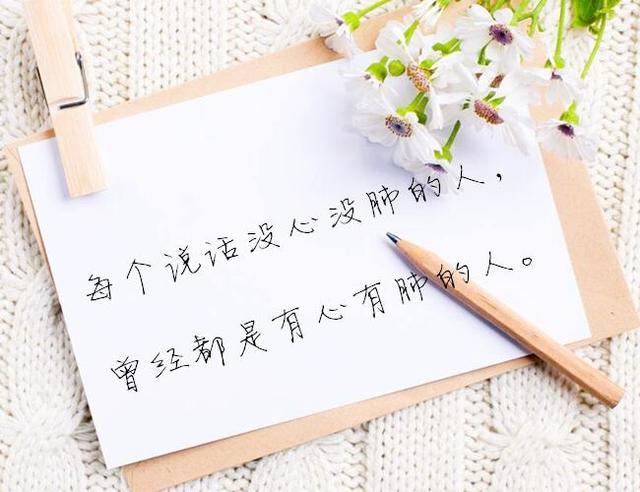 每个说话没心没肺的人，
曾经都是有心有肺的人。